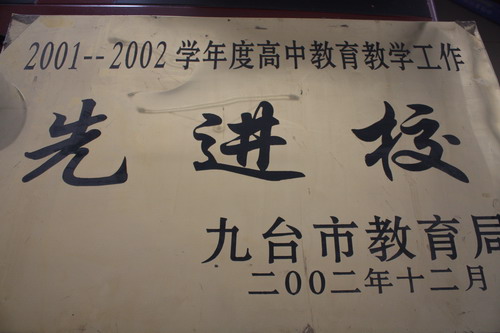 2001--2002学年度高中教育教学工作
先进校
九台市教育局
二〇〇二年十二月